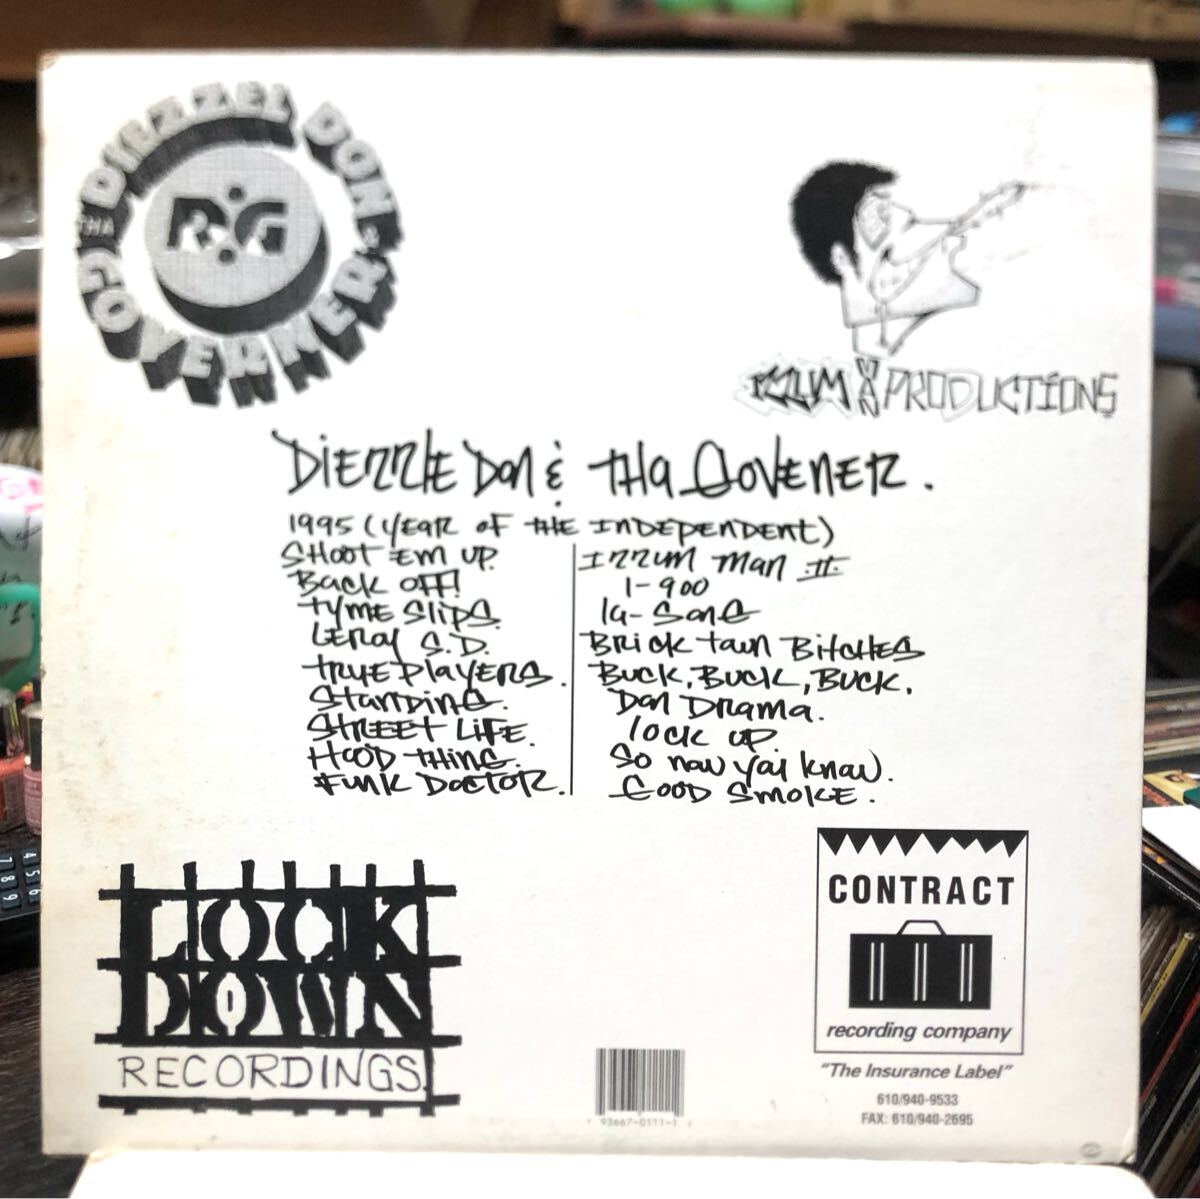 DIEZZEL DON &
THA GOVERNER
R&G
IZZUM MAN PRODUCTIONS
DIEZZLE DON & THA GOVENER.
1995 (YEAR OF THE INDEPENDENT)
SHOOT EM UP.
BACK OFF!
TYME SLIPS.
LEROY S.D.
TRUE PLAYERS.
STANDING.
STREET LIFE.
HOOD THING.
FUNK DOCTOR.
IZZUM MAN II
1-900
IG-SANG
BRICK TOWN BITCHES
BUCK, BUCK, BUCK.
DON DRAMA.
LOCK UP.
SO NOW YOU KNOW.
GOOD SMOKE.
LOCK
DOWN
RECORDINGS.
CONTRACT
recording company
"The Insurance Label"
610/940-9533
FAX: 610/940-2695
93667-0111-1